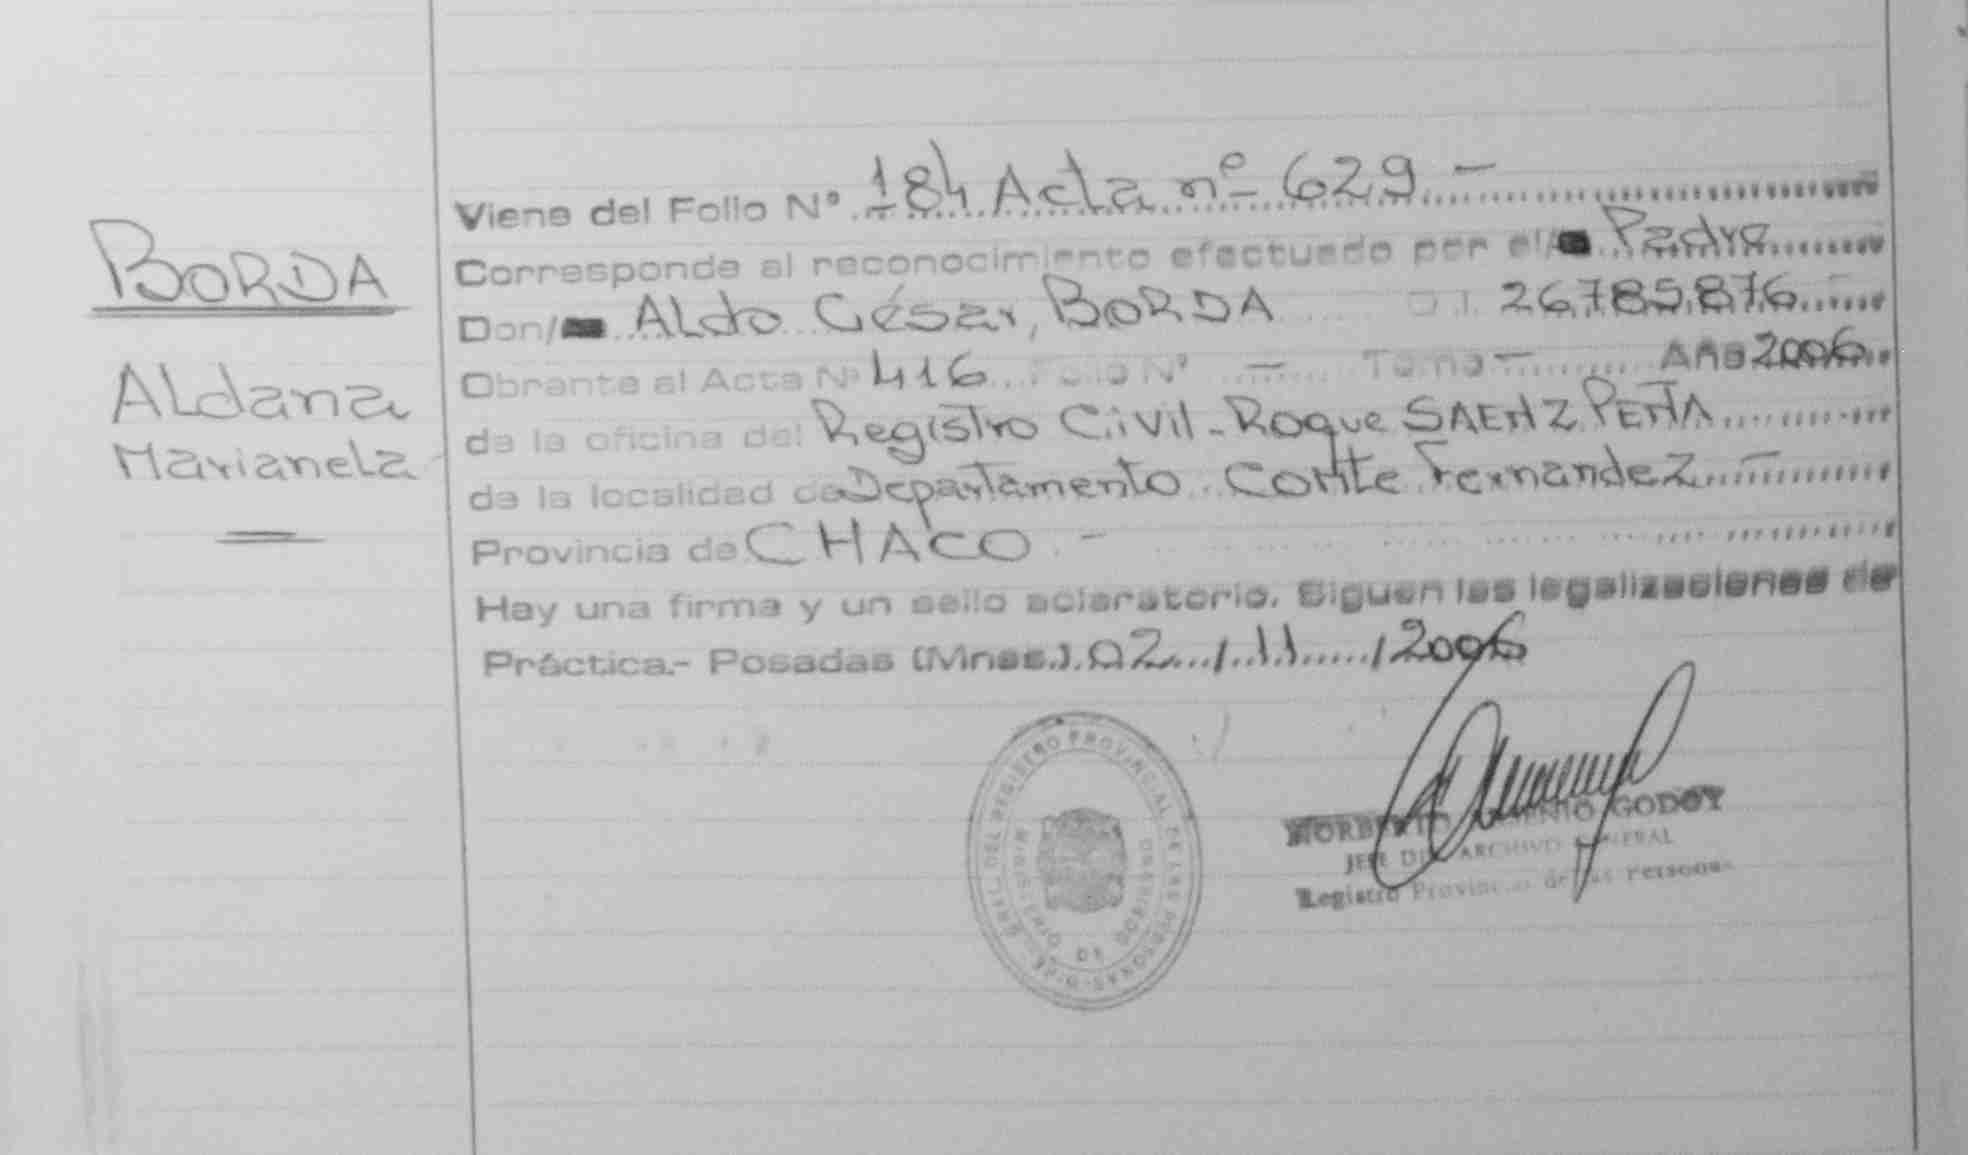 BORDA
Aldana
Marianela
Viene del Folio Nº 184 Acta nº 629 -
Corresponde al reconocimiento efectuado por el/ Padre
Don/ Aldo César, BORDA D.I. 26.785.876
Obrante al Acta Nº 416 Folio Nº - Tomo - Año 2006
de la oficina del Registro Civil - Roque SAENZ PEÑA
de la localidad de Departamento Comte Fernandez -
Provincia de CHACO . -
Hay una firma y un sello aclaratorio. Siguen las legalizaciones de
Práctica.- Posadas (Mnes.). 02 / 11 / 2006
GRAL. DEL REGISTRO PROVINCIAL DE LAS PERSONAS
MINISTERIO DE GOBIERNO
NORBERTO GODOY
JEFE DEL ARCHIVO GENERAL
Registro Provincial de las Personas